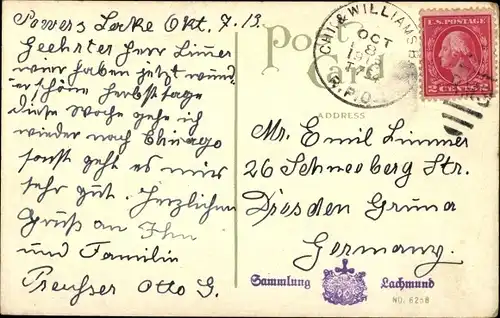 Powers Lake Okt. 7. 13.
Geehrter Herr Limer
wier haben jetzt wund-
er schöne herbsttage
diese Woche gehe ich
wieder nach Chicago
sonst geht es mir
sehr gut. Herzlichen
Gruß an Ihn
und Familie
Preußer Otto G.
Post Card
ADDRESS
CHI. & WILLIAMS B
OCT
8
R.P.O.
U.S. POSTAGE
2 CENTS 2
Mr. Emil Limmer
26 Schneeberg Str.
Dresden Gruna
Germany.
Sammlung Lachmund
NO. 6258